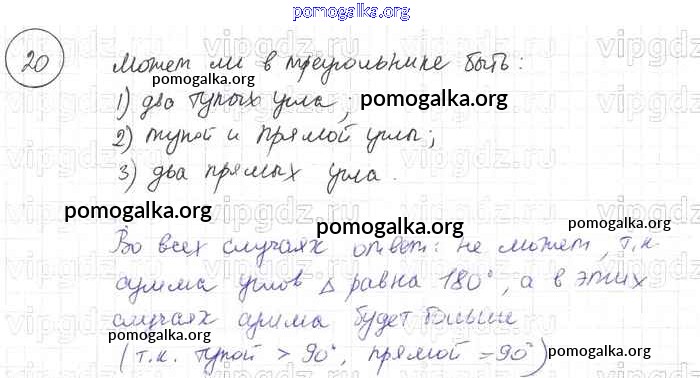 pomogalka.org
20
Может ли в треугольнике быть:
pomogalka.org
1) два тупых угла; pomogalka.org
2) тупой и прямой углы;
3) два прямых угла.
pomogalka.org
pomogalka.org pomogalka.org
Во всех случаях ответ: не может, т.к.
сумма углов Δ равна 180°, а в этих
случаях сумма будет больше
pomogalka.org
(т.к. тупой > 90°, прямой = 90°) pomogalka.org